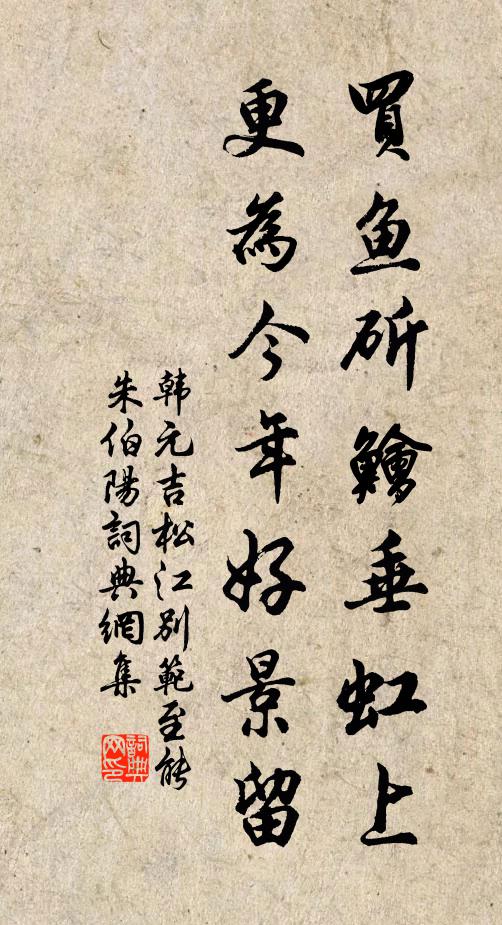 買魚斫鱠垂虹上
更為今年好景留
韩元吉松江別範至能
朱伯陽詞典網集
詞典
网印